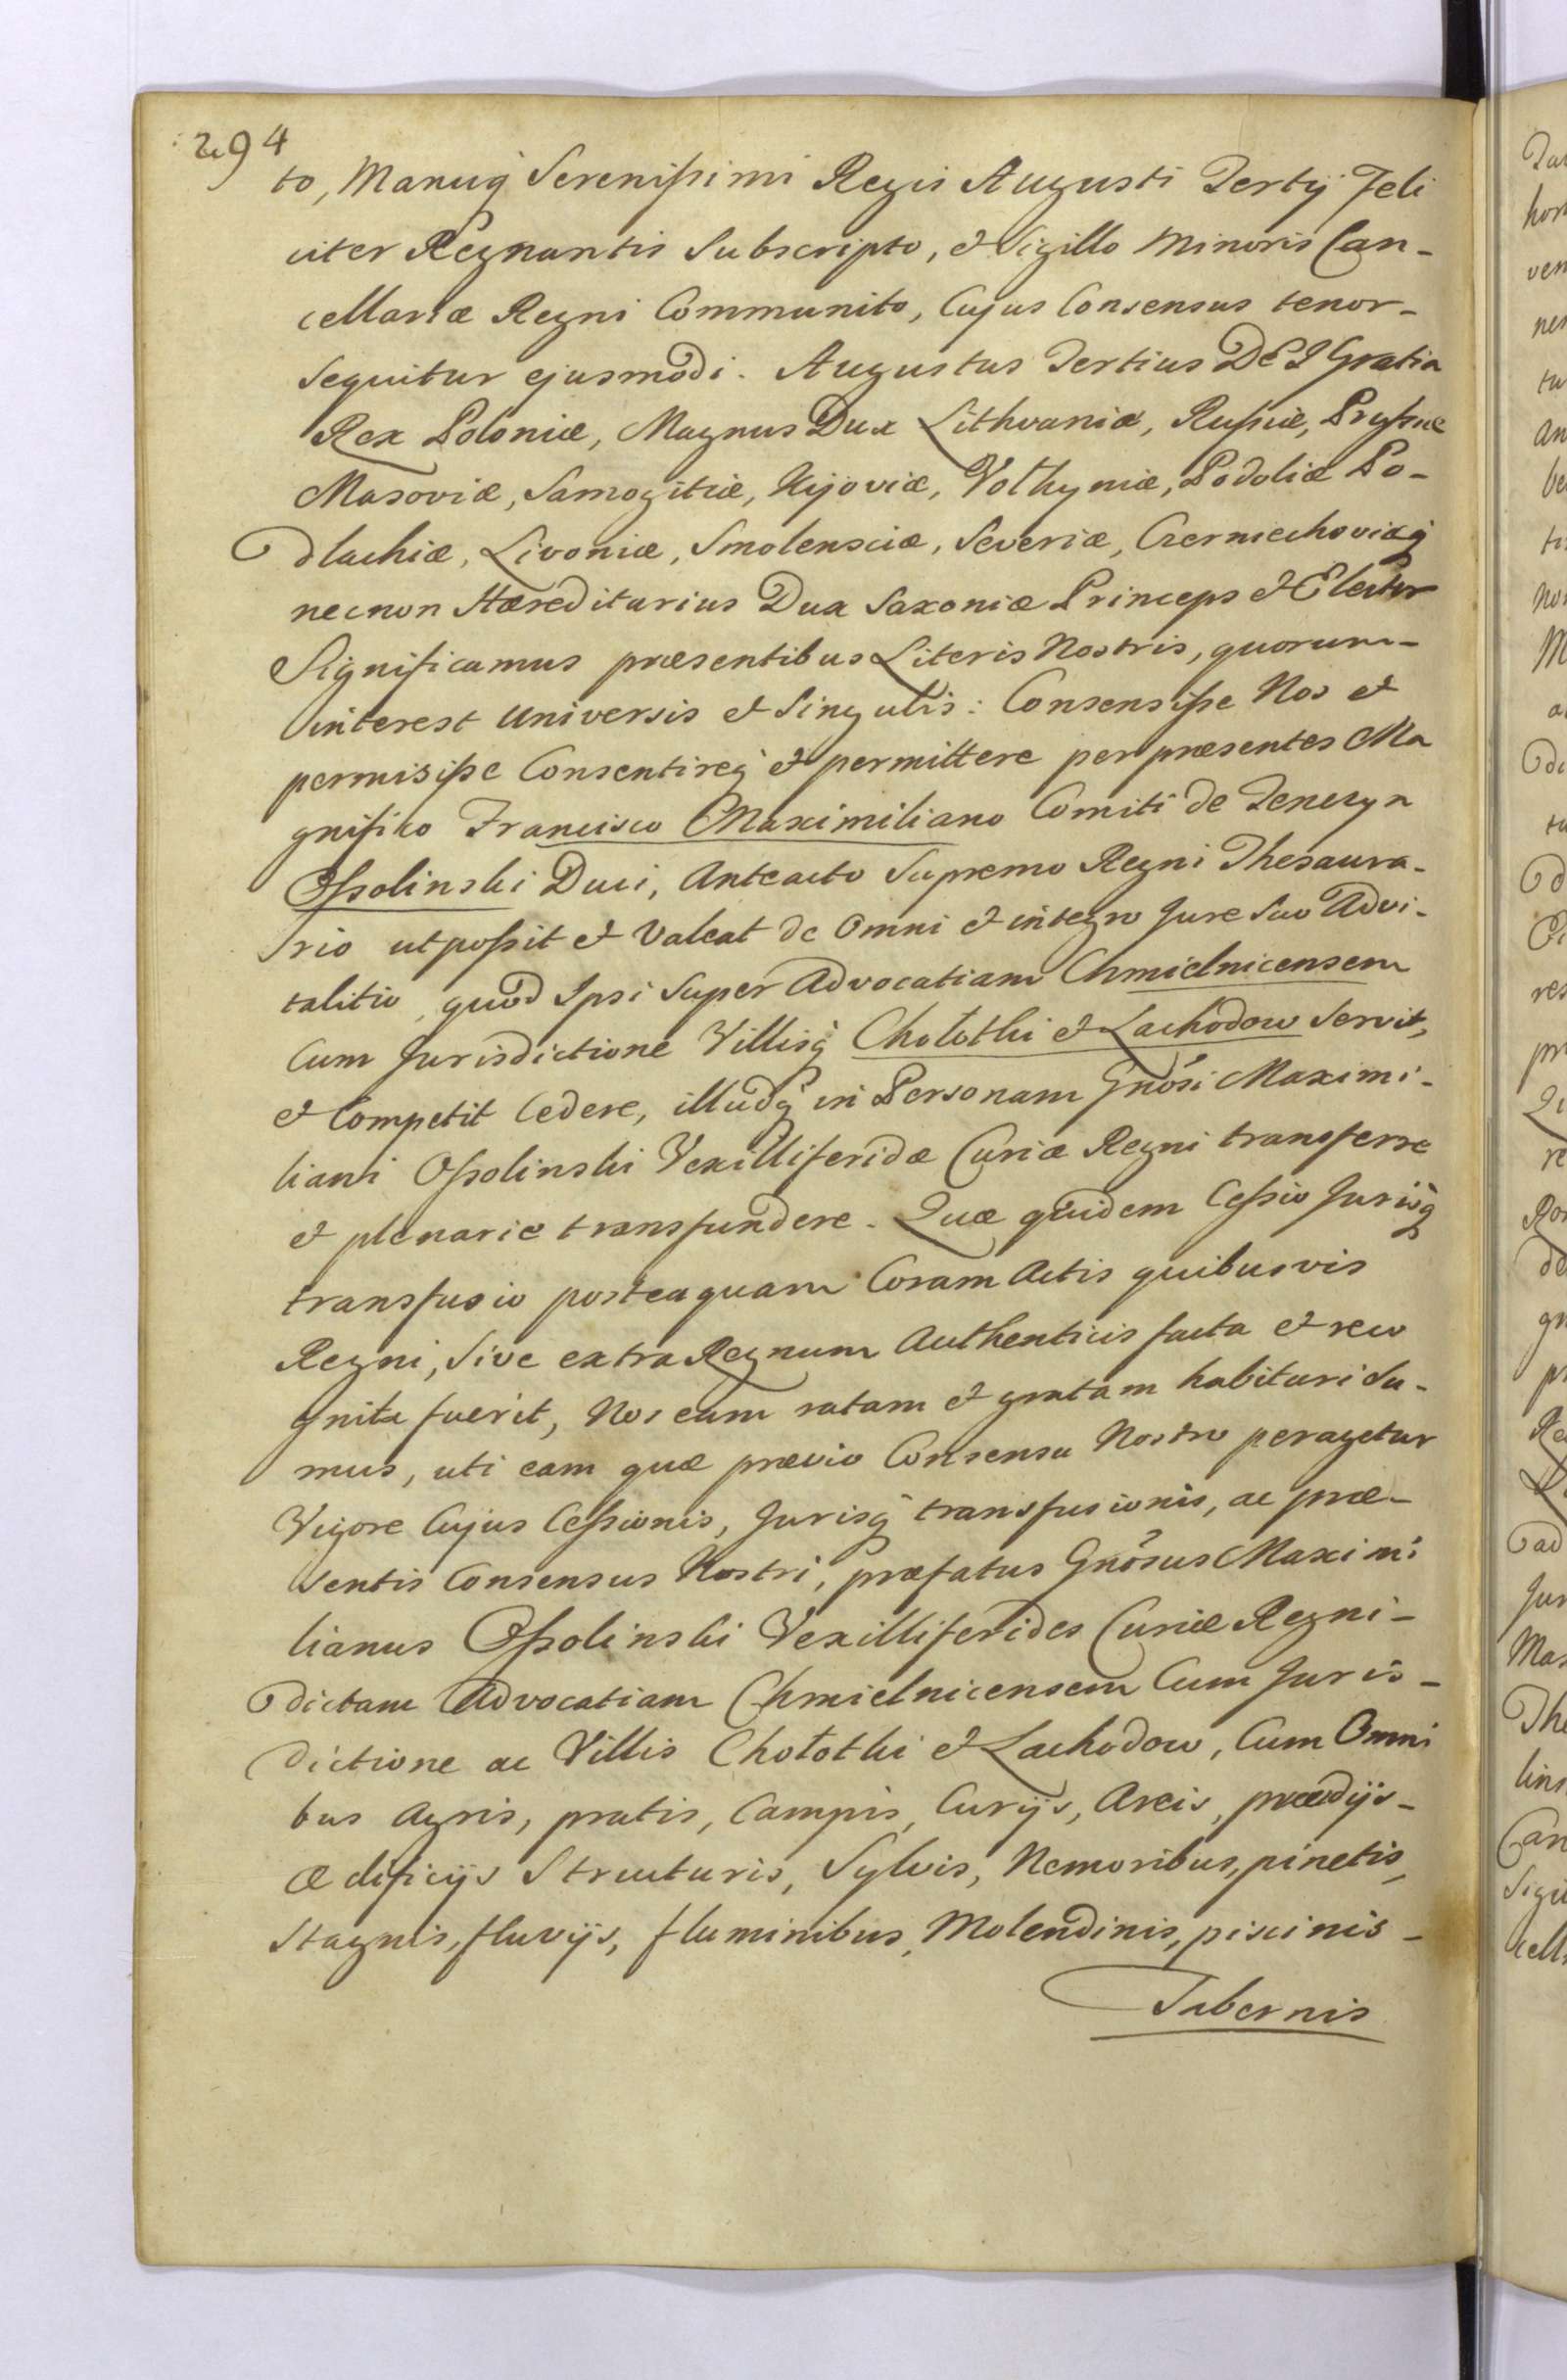 294
to, Manuq Serenissimi Regis Augusti Tertij Feli
citer Regnantis Subscripto, et Sigillo Minoris Can-
cellariæ Regni Communito, Cujus Consensus tenor-
sequitur ejusmodi. Augustus Tertius DEI Gratia
Rex Poloniæ, Magnus Dux Lithvaniæ, Russiæ, Pryssiæ
Masoviæ, Samogitiæ, Kijoviæ, Volhyniæ, Podoliæ Po-
dlachiæ, Livoniæ, Smolensciæ, Severiæ, Czerniechoviæq
necnon Hæreditarius Dux Saxoniæ Princeps et Elector
Significamus præsentibus Literis Nostris, quorum-
interest Universis et Singulis: Consensisse Nos et
permisisse Consentireq et permittere per præsentes Ma
gnifico Francisco Maximiliano Comiti de Tenczyn
Ossolinski Duci, Anteacto Supremo Regni Thesaura-
rio ut possit et Valeat de Omni et integro Jure Suo Advi-
talitio, quod Ipsi Super Advocatiam Chmielnicensem
Cum Jurisdictione Villisq Chołothi et Lachodow Servit,
et Competit Cedere, illudq in Personam Gnosi Maximi-
liani Ossolinski Vexilliferidæ Curiæ Regni transferre
et plenarie transfundere. Quæ quidem Cessio Jurisq
transfusio posteaquam Coram Actis quibusvis
Regni, Sive extra Regnum Authenticis facta et reco
gnita fuerit, Nos eam ratam et gratam habituri Su-
mus, uti eam quæ prævio Consensu Nostro peragetur
Vigore Cujus Cessionis, Jurisq transfusionis, ac præ-
sentis Consensus Nostri, præfatus Gnosus Maximi
lianus Ossolinski Vexilliferides Curiæ Regni-
dictam Advocatiam Chmielnicensem Cum Juris-
dictione ac Villis Chołothi et Lachodow, Cum Omni
bus Agris, pratis, Campis, Curijs, Areis, prædijs-
ædificijs Structuris, Sylvis, Nemoribus, pinetis,
Stagnis, fluvijs, fluminibus, Molendinis, piscinis-
Tabernis